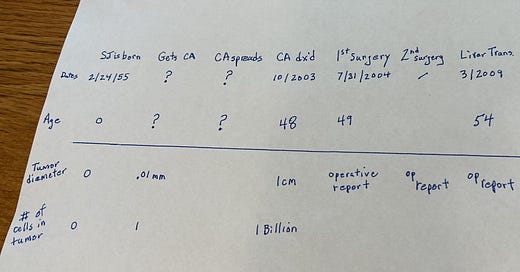 SJ is born Gets CA CA spreads CA dx'd 1st Surgery 2nd surgery Liver Trans.
Dates 2/24/55 ? ? 10/2003 7/31/2004 / 3/2009
Age 0 ? ? 48 49 54
Tumor diameter 0 .01 mm 1 cm operative report op report op report
# of cells in tumor 0 1 1 Billion